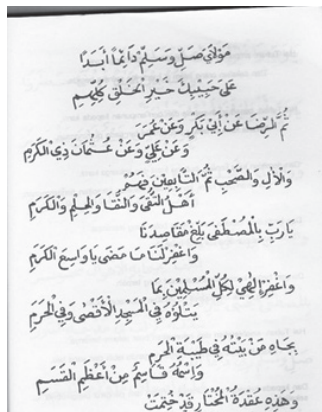 مَوْلَايَ صَلِّ وَسَلِّمْ دَائِمًا أَبَدًا
عَلَى حَبِيْبِكَ خَيْرِ الْخَلْقِ كُلِّهِمِ
ثُمَّ الرِّضَا عَنْ أَبِي بَكْرٍ وَعَنْ عُمَرَ
وَعَنْ عَلِيٍّ وَعَنْ عُثْمَانَ ذِي الْكَرَمِ
وَالْآلِ وَالصَّحْبِ ثُمَّ التَّابِعِيْنَ فَهُمْ
أَهْلُ التُّقَى وَالنَّقَا وَالْحِلْمِ وَالْكَرَمِ
يَارَبِّ بِالْمُصْطَفَى بَلِّغْ مَقَاصِدَنَا
وَاغْفِرْ لَنَا مَا مَضَى يَا وَاسِعَ الْكَرَمِ
وَاغْفِرْ إِلٰهِيْ لِكُلِّ الْمُسْلِمِيْنَ بِمَا
يَتْلُوْهُ فِي الْمَسْجِدِ الْأَقْصَى وَفِي الْحَرَمِ
بِجَاهِ مَنْ بَيْتُهُ فِيْ طَيْبَةَ الْحَرَمِ
وَاسْمُهُ قَاسِمٌ مِنْ أَعْظَمِ الْقَسَمِ
وَهٰذِهِ عُقْدَةُ الْمُخْتَارِ قَدْ خُتِمَتْ